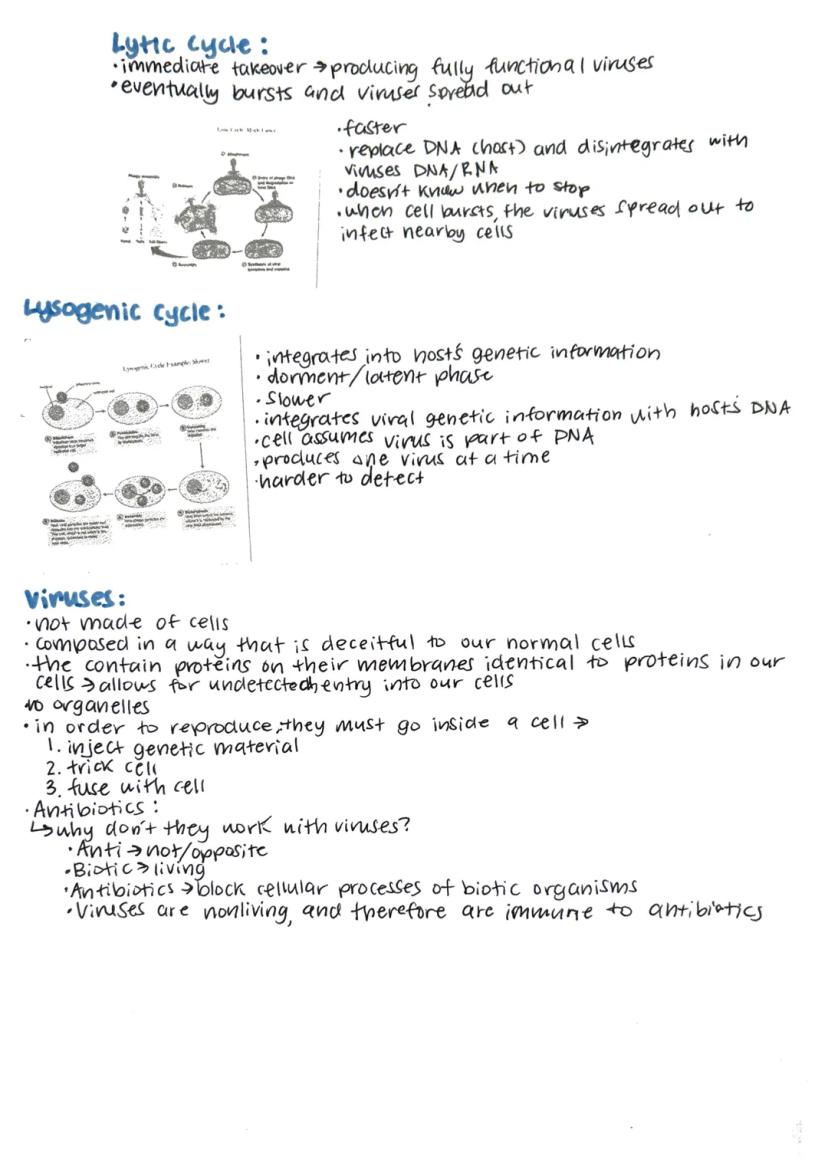 Lytic Cycle:
·immediate takeover → producing fully functional viruses
·eventually bursts and viruses spread out
Lytic Cycle
Attachment
Phage assembly
Release
Assembly
·faster
·replace DNA (host) and disintegrates with
viruses DNA/RNA
·doesn't know when to stop
·when cell bursts, the viruses spread out to
infect nearby cells
Lysogenic Cycle:
Lysogenic Cycle Example: Slower
·integrates into host's genetic information
·dorment/latent phase
·slower
·integrates viral genetic information with host's DNA
·cell assumes virus is part of DNA
·produces one virus at a time
·harder to detect
Viruses:
·not made of cells
·composed in a way that is deceitful to our normal cells
·the contain proteins on their membranes identical to proteins in our
cells → allows for undetected entry into our cells
no organelles
·in order to reproduce, they must go inside a cell →
1. inject genetic material
2. trick cell
3. fuse with cell
·Antibiotics:
↳why don't they work with viruses?
·Anti → not/opposite
·Biotic → living
·Antibiotics → block cellular processes of biotic organisms
·Viruses are nonliving, and therefore are immune to antibiotics